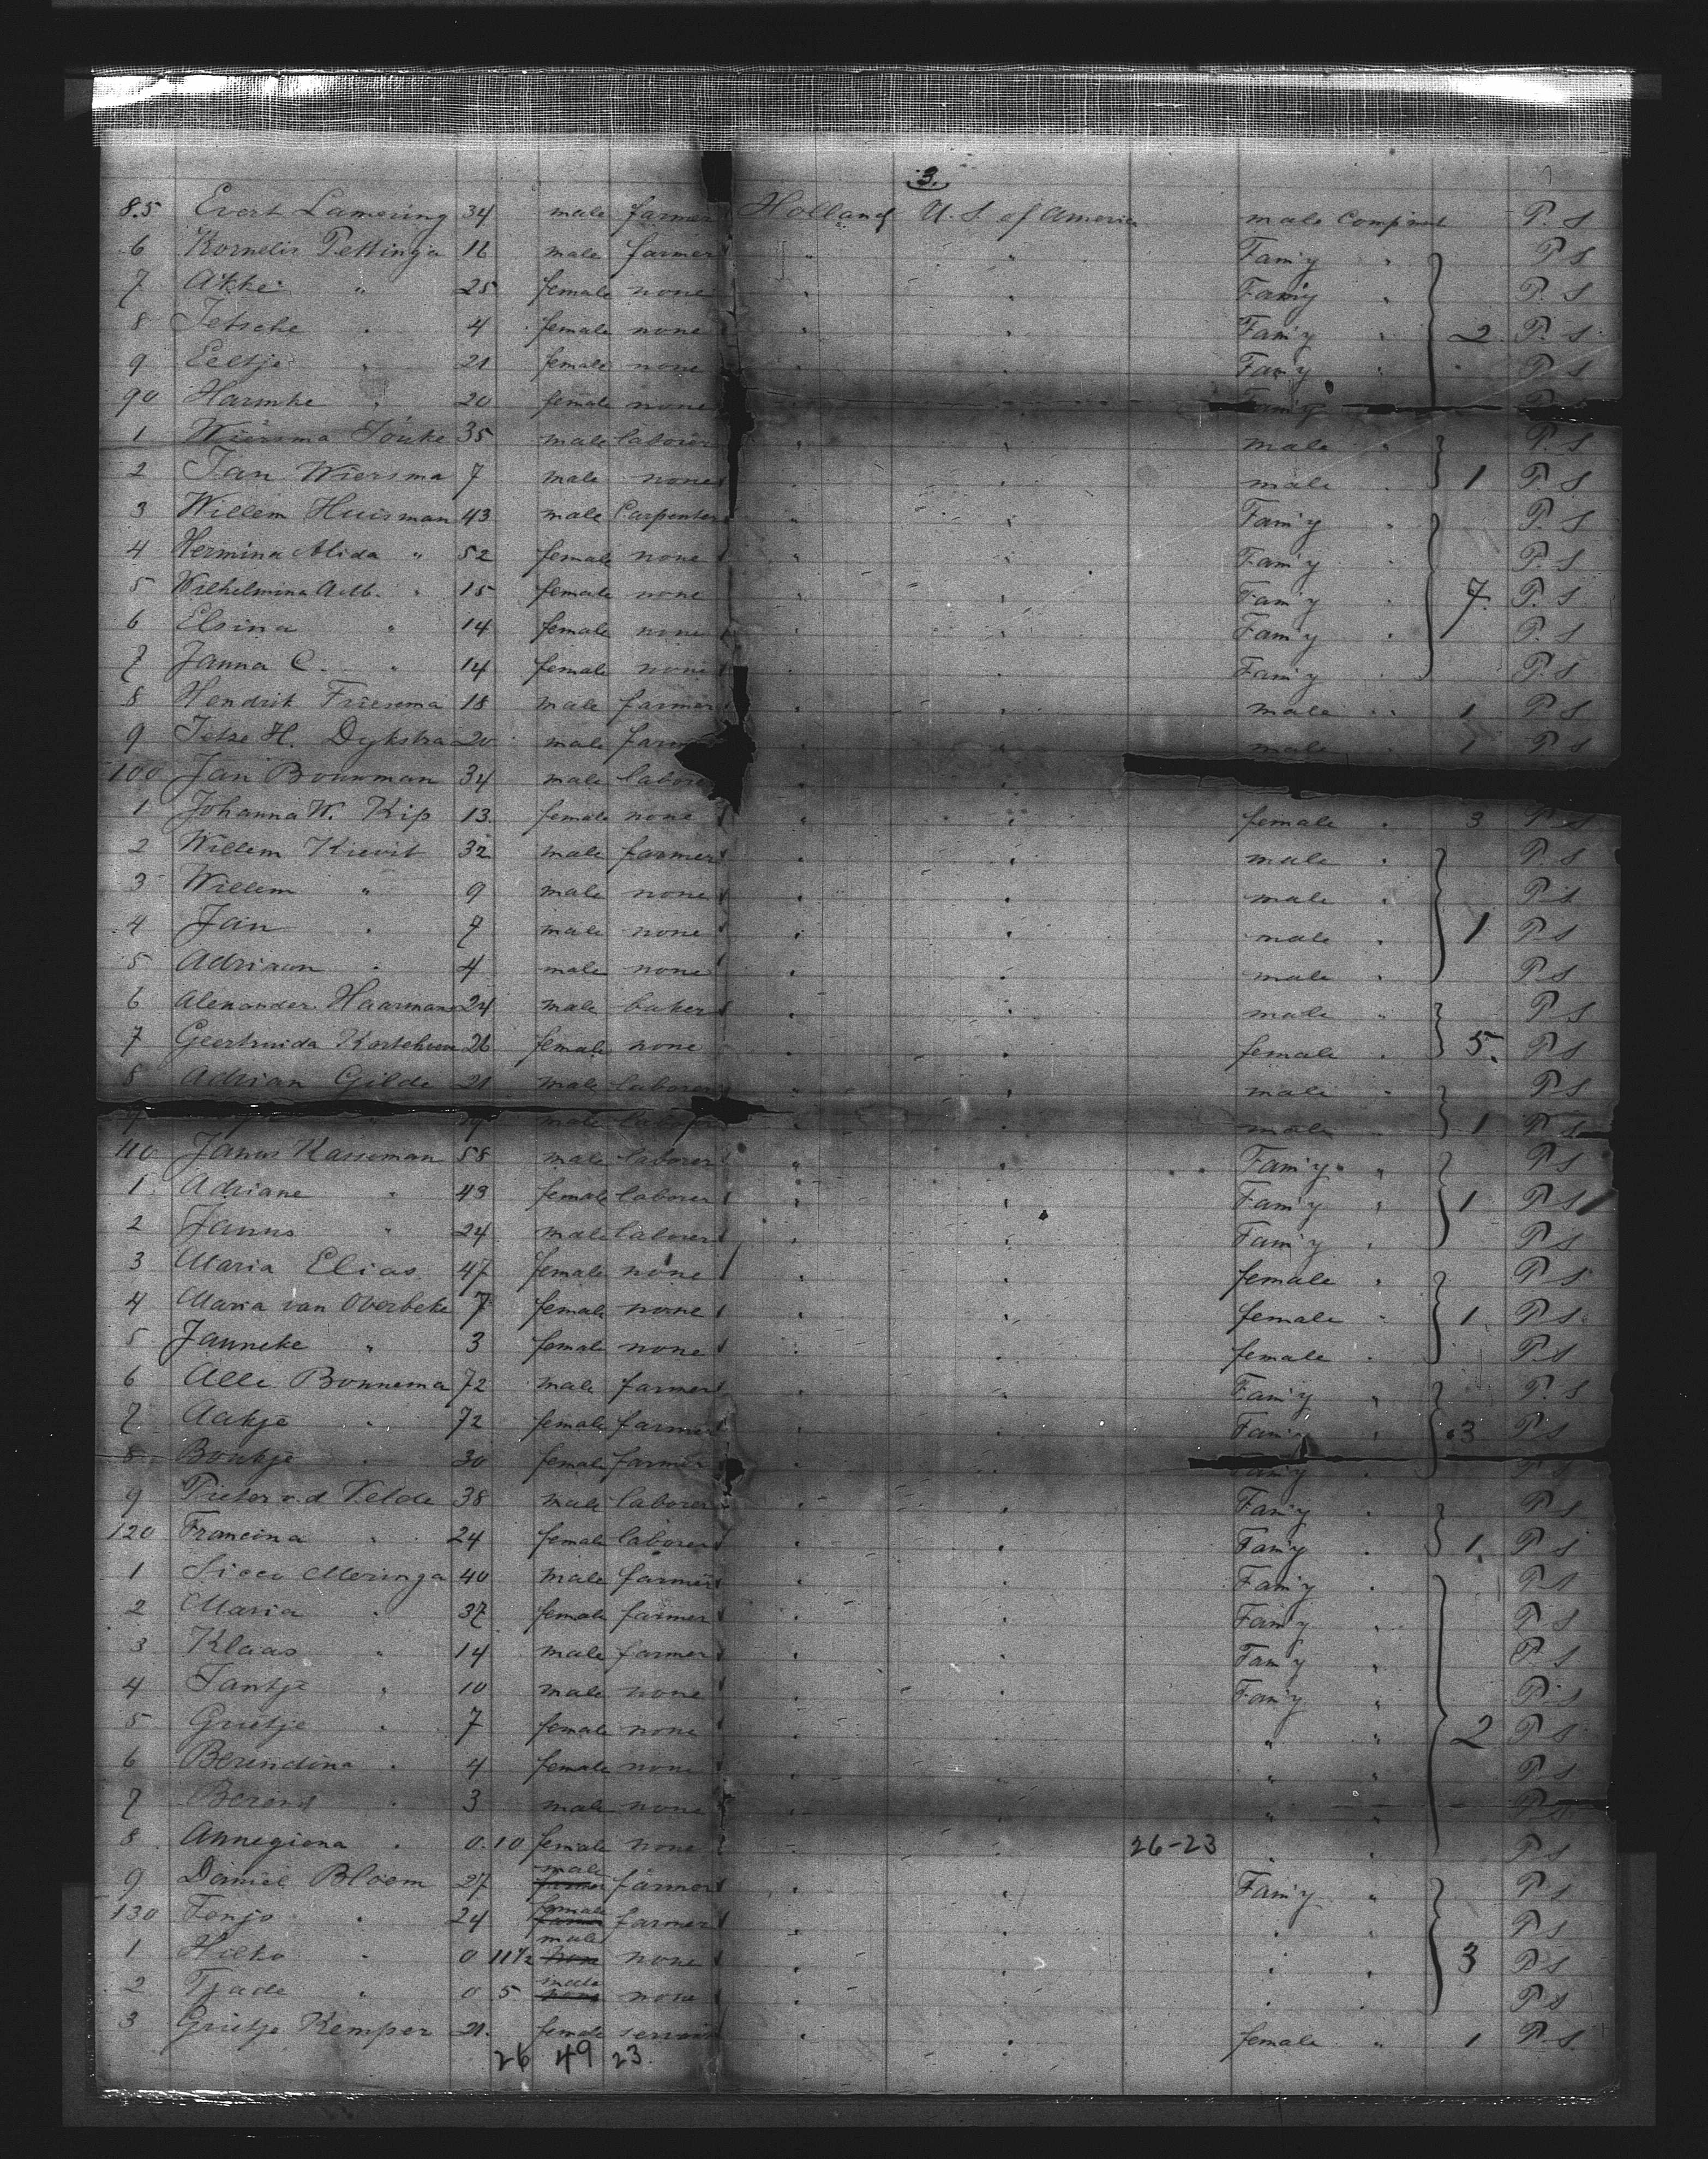 3.
85 Evert Lamering 34 male farmer Holland U. S. of America male Comp'ment P. S
6 Kornelis Pettinga 16 male farmer " " Fam'y " P S
7 Akke " 25 female none " " Fam'y " P. S
8 Jetsche " 4 female none " " Fam'y " 2 P. S
9 Eeltje " 21 female none " " Fam'y " P S
90 Harmke " 20 female none " " Fam'y
1 Wiersma Souke 35 male laborer " " male " P. S
2 Jan Wiersma 7 male none " " male " 1 P S
3 Willem Huisman 43 male Carpenter " " Fam'y " P. S
4 Hermina Alida " 52 female none " " Fam'y " P. S
5 Wilhelmina A.M. " 15 female none " " Fam'y " 7. P. S
6 Elsina " 14 female none " " Fam'y " P. S
7 Janna C. " 14 female none " " Fam'y " P. S
8 Hendrik Friesema 18 male farmer " " male " 1 P S
9 Jetse H. Dykstra 20 male farmer " " male 1 P S
100 Jan Bouwman 34 male laborer " "
1 Johanna W. Kip 13 female none " " female " 3 P S
2 Willem Kievit 32 male farmer " " male " P. S
3 Willem " 9 male none " " male " P. S
4 Jan " 7 male none " " male " 1 P S
5 Adriaan " 4 male none " " male " P S
6 Alexander Haarmans 24 male baker " " male " P S
7 Geertruida 26 female none " " female " 5. P S
8 Adrian Gilde 21 male laborer " " male " P S
9 male laborer " " male 1 P S
110 Janus Kasseman 58 male laborer " " Fam'y " P S
1 Adriane " 49 female laborer " " Fam'y " 1 P S
2 Janus " 24 male laborer " " Fam'y " P S
3 Maria Elias 47 female none " " female " P S
4 Maria van Overbeke 7 female none " " female " 1 P. S
5 Janneke " 3 female none " " female " P. S
6 Alle Bonnema 72 male farmer " " Fam'y " P. S
7 Aakje " 72 female farmer " " Fam'y " 3 P S
8 Boukje " 30 female farmer " " Fam'y P S
9 Pieter v.d Velde 38 male laborer " " Fam'y " P S
120 Francina " 24 female laborer " " Fam'y " 1 P S
1 Sicco Meringa 40 male farmer " " Fam'y " P S
2 Maria " 37 female farmer " " Fam'y " P S
3 Klaas " 14 male farmer " " Fam'y " P S
4 Jantje " 10 male none " " Fam'y " P. S
5 Grietje " 7 female none " " " " 2 P S
6 Berendina " 4 female none " " " " P S
7 Berend " 3 male none " " " " P S
8 Annegiena " 0.10 female none " " 26-23 " " P S
9 Daniel Bloem 27 male farmer farmer " " Fam'y " P S
130 Fenjo " 24 female farmer farmer " " " " P S
1 Hilko " 0 11½ male none none " " " " 3 P S
2 Tjade " 0 5 male none none " " " " P S
3 Grietje Kemper 21. female servant " " female " 1 P. S.
26 49 23